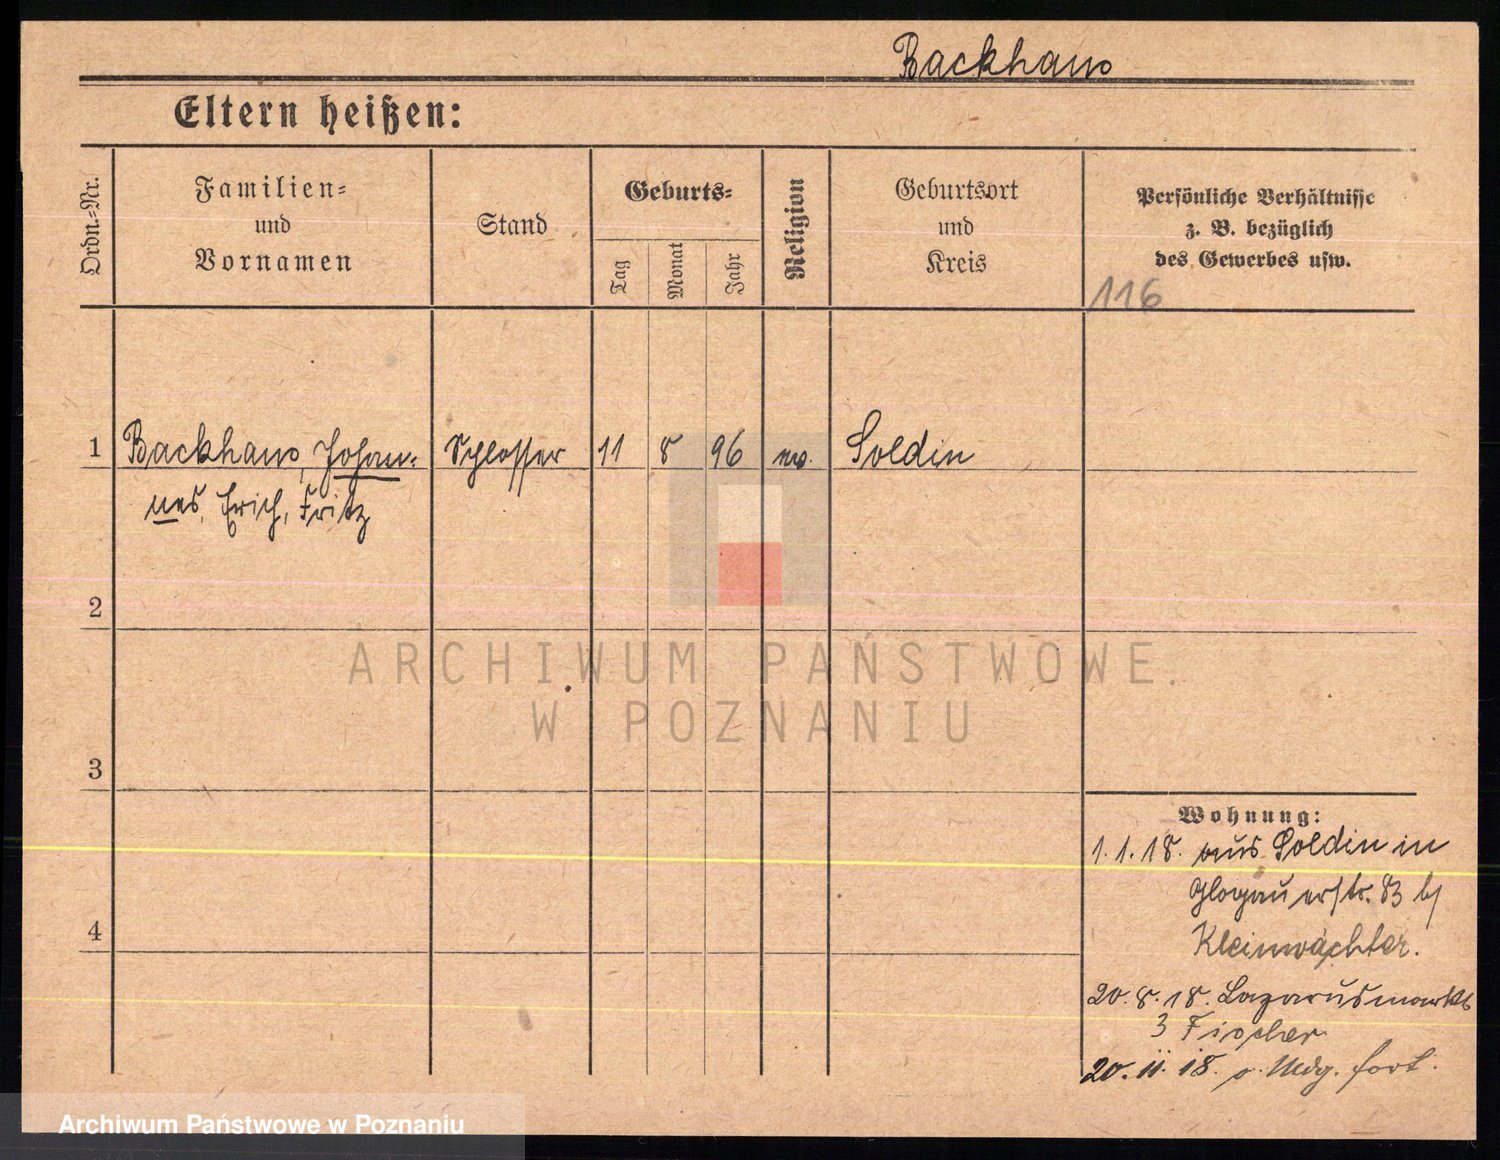 Backhaus
Eltern heißen:
Ordn.=Nr.
Familien=
und
Vornamen
Stand
Geburts=
Tag
Monat
Jahr
Religion
Geburtsort
und
Kreis
Persönliche Verhältnisse
z. B. bezüglich
des Gewerbes usw.
116
1 Backhaus, Johan= Schlosser 11 8 96 ev. Soldin
nes, Erich, Fritz
2
3
4
Wohnung:
1.1.18. aus Soldin in
Glogauerstr. 83 b/
Kleinwächter.
20.8.18. Lazarusmarkt
3 Fischer
20.11.18. o. Mdg. fort.
ARCHIWUM PAŃSTWOWE
W POZNANIU
Archiwum Państwowe w Poznaniu